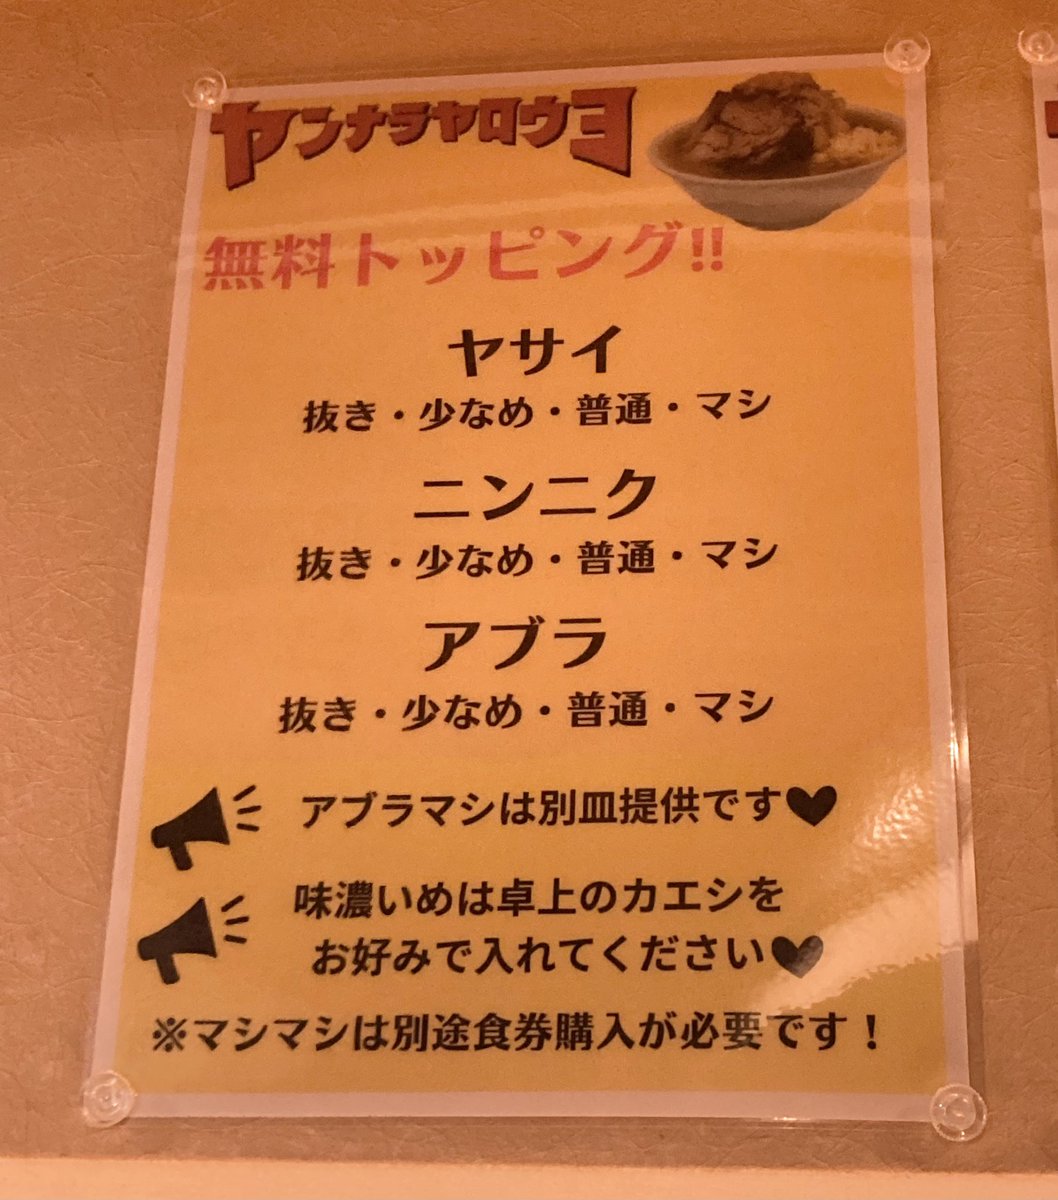 ヤンナラヤロウヨ
無料トッピング!!
ヤサイ
抜き・少なめ・普通・マシ
ニンニク
抜き・少なめ・普通・マシ
アブラ
抜き・少なめ・普通・マシ
アブラマシは別皿提供です♥
味濃いめは卓上のカエシを
お好みで入れてください♥
※マシマシは別途食券購入が必要です！